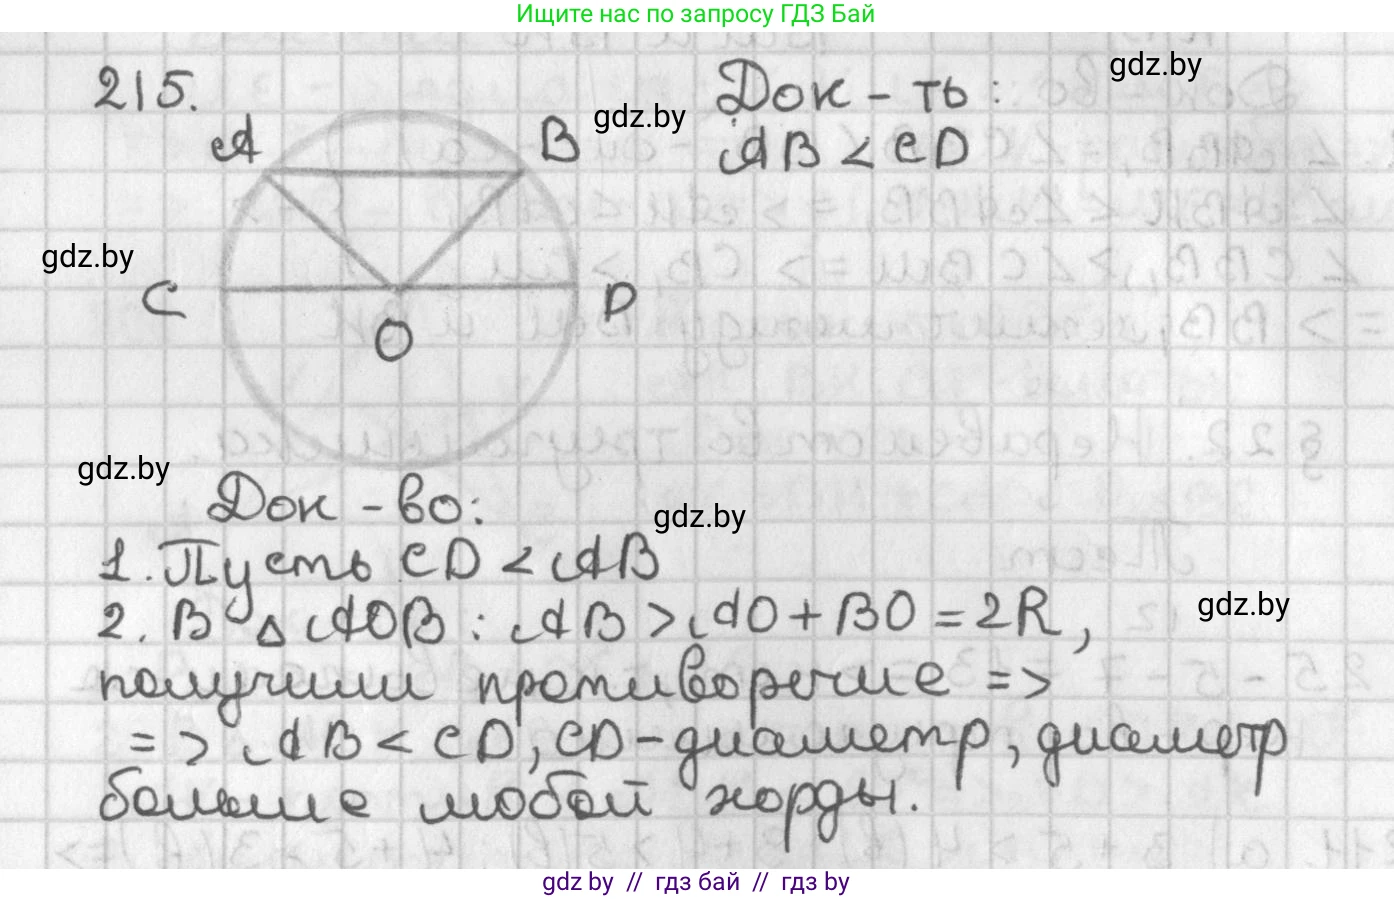 Ищите нас по запросу ГДЗ Бай
215.
Док - ть :
gdz.by
gdz.by
A
B
AB < CD
gdz.by
C
D
O
gdz.by
Док - во:
gdz.by
1. Пусть CD < AB
2. В △ AOB : AB > AO + BO = 2R ,
gdz.by
получили противоречие =>
=> AB < CD, CD - диаметр, диаметр
больше любой хорды.
gdz by // гдз бай // гдз by